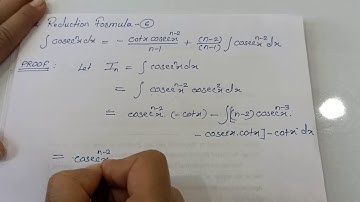 Reduction Formula - 6
∫ cosecⁿx dx = - cotx cosecⁿ⁻²x / n-1 + (n-2)/(n-1) ∫ cosecⁿ⁻²x dx
PROOF: Let Iₙ = ∫ cosecⁿx dx
= ∫ cosecⁿ⁻²x cosec²x dx
= cosecⁿ⁻²x. (-cotx) - ∫[(n-2) cosecⁿ⁻³x.
- cosecx. cotx] - cotx dx
= cosecⁿ⁻²